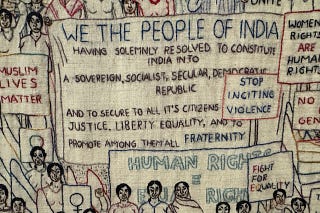 UNITE
WE THE PEOPLE OF INDIA
HAVING SOLEMNLY RESOLVED TO CONSTITUTE
INDIA INTO
A SOVEREIGN, SOCIALIST, SECULAR, DEMOCRATIC
REPUBLIC
AND TO SECURE TO ALL IT'S CITIZENS
JUSTICE, LIBERTY EQUALITY, AND TO
PROMOTE AMONG THEM ALL FRATERNITY
MUSLIM
LIVES
MATTER
STOP
INCITING
VIOLENCE
WOMEN
RIGHTS
ARE
HUMAN
RIGHTS
NO
GEN
HUMAN RIGHTS
=
RIGH
FIGHT
FOR
EQUALITY